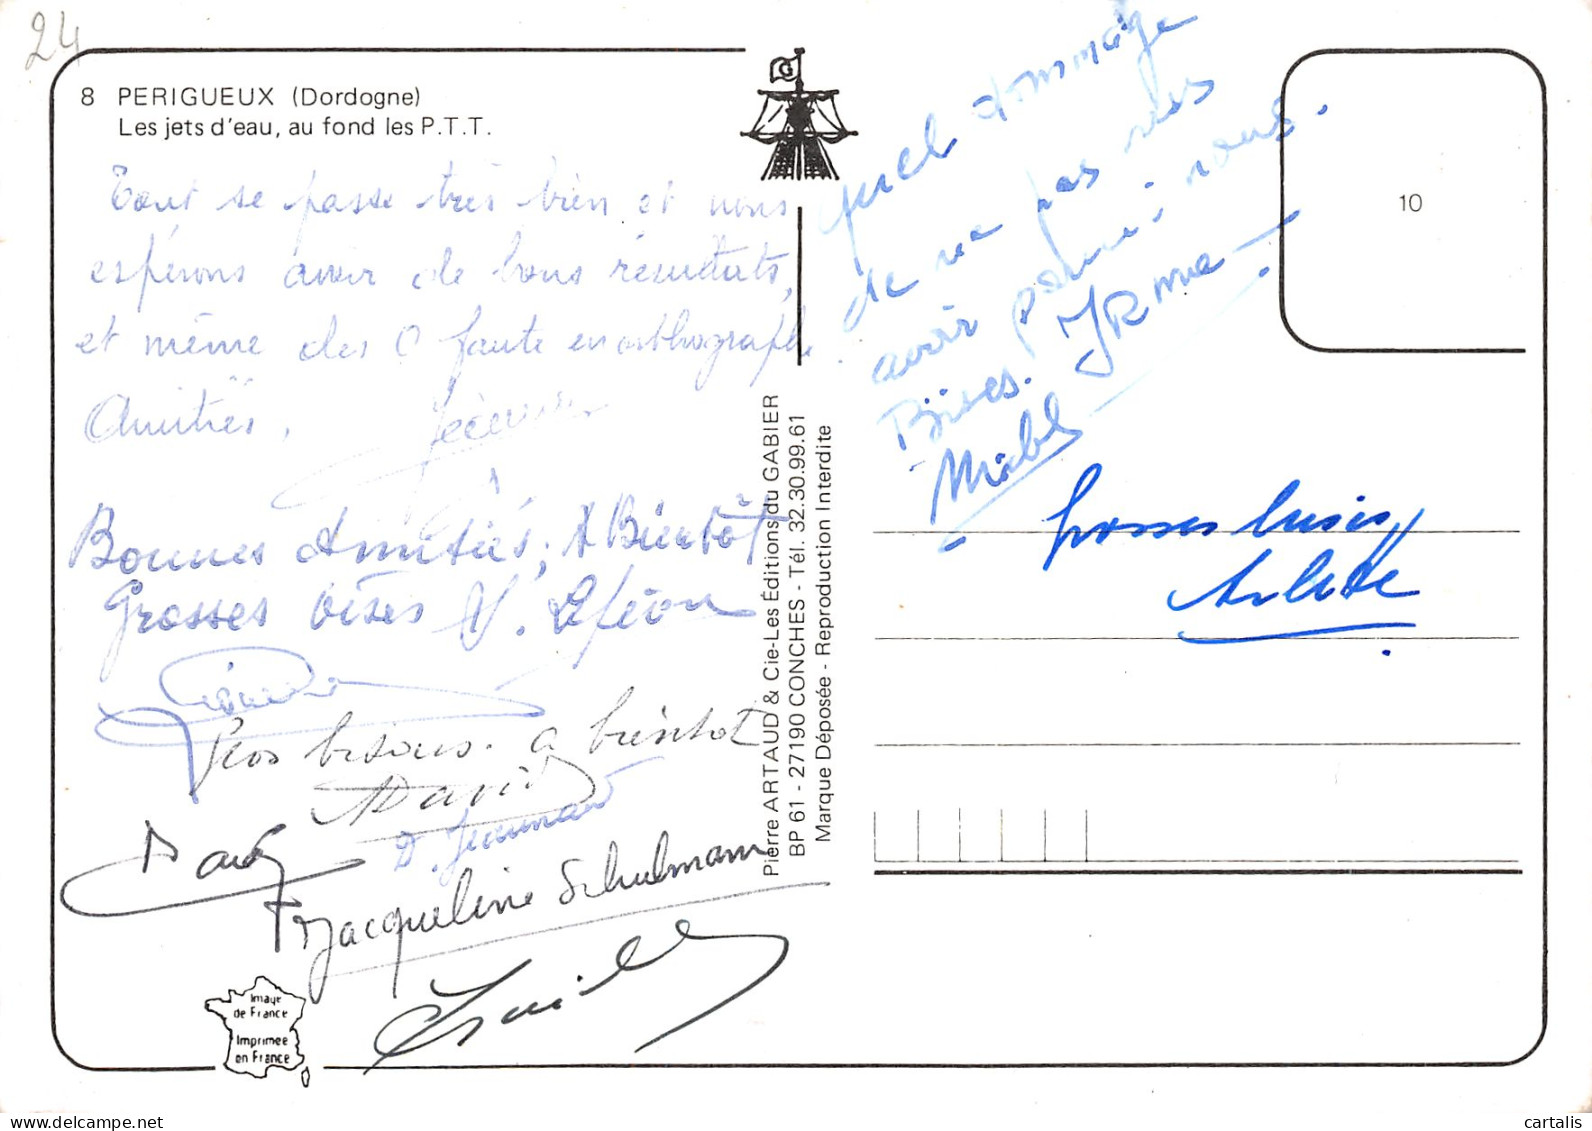 24
8 PERIGUEUX (Dordogne)
Les jets d'eau, au fond les P.T.T.
G
Tout se passe très bien et nous
espérons avoir de bons résultats,
et même des 0 faute en orthographe
Amitiés,
Bonnes Amitiés, A Bientôt
Grosses bises
Gros bisous. a bientot
David
Jacqueline Schulmann
Quel dommage
de ne pas vous
avoir parmi nous.
Bises.
10
Grosses bises
Arlette
Pierre ARTAUD & Cie-Les Éditions du GABIER
BP 61 - 27190 CONCHES - Tél. 32.30.99.61
Marque Déposée - Reproduction Interdite
Image
de France
Imprimée
en France
cartalis